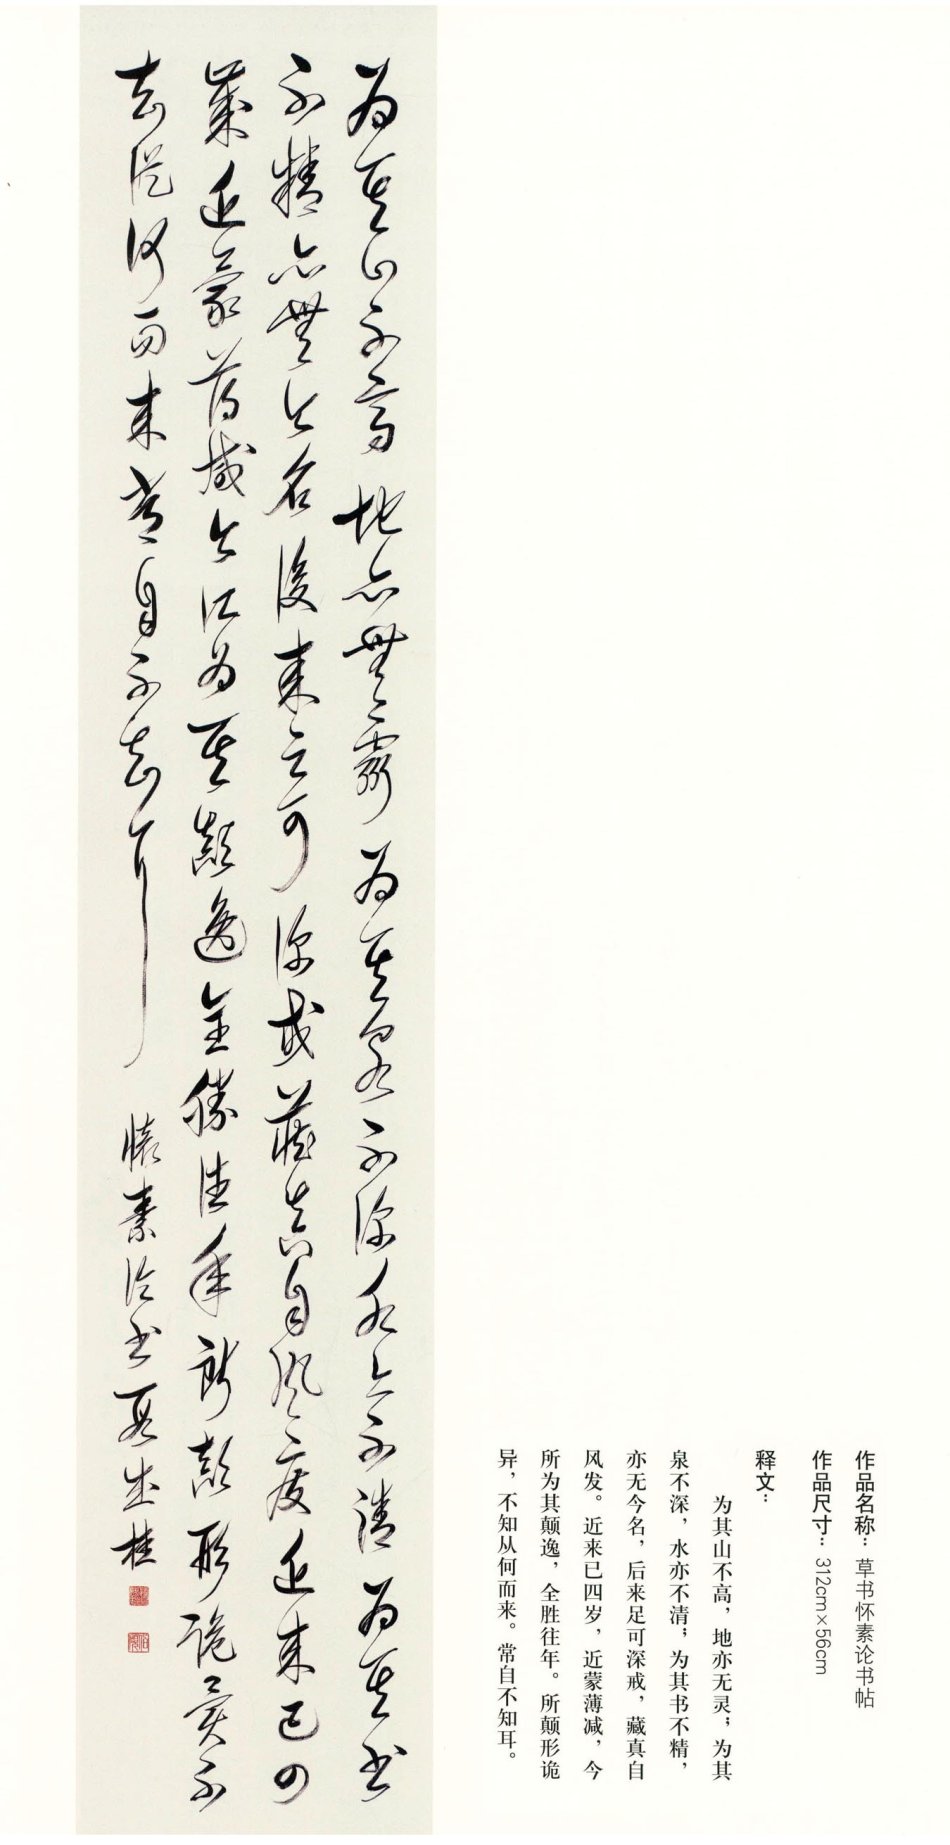 作品名称：草书怀素论书帖
作品尺寸：312cm×56cm
释文：
为其山不高，地亦无灵；为其
泉不深，水亦不清；为其书不精，
亦无今名，后来足可深戒，藏真自
风发。近来已四岁，近蒙薄减，今
所为其颠逸，全胜往年。所颠形诡
异，不知从何而来。常自不知耳。
為其山不高地亦無靈為其泉不深水亦不清為其書
不精亦無令名後來足可深戒藏真自風發近來已四
歲近蒙薄減今所為其顛逸全勝往年所顛形詭異不
知從何而來常自不知耳 懷素論書 段成桂